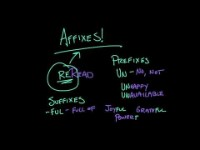 AFFIXES!
PREFIXES
UN - NO, NOT
REREAD
UNHAPPY
UNAVAILABLE
SUFFIXES
-FUL - FULL OF
JOYFUL GRATEFUL
POWERFUL